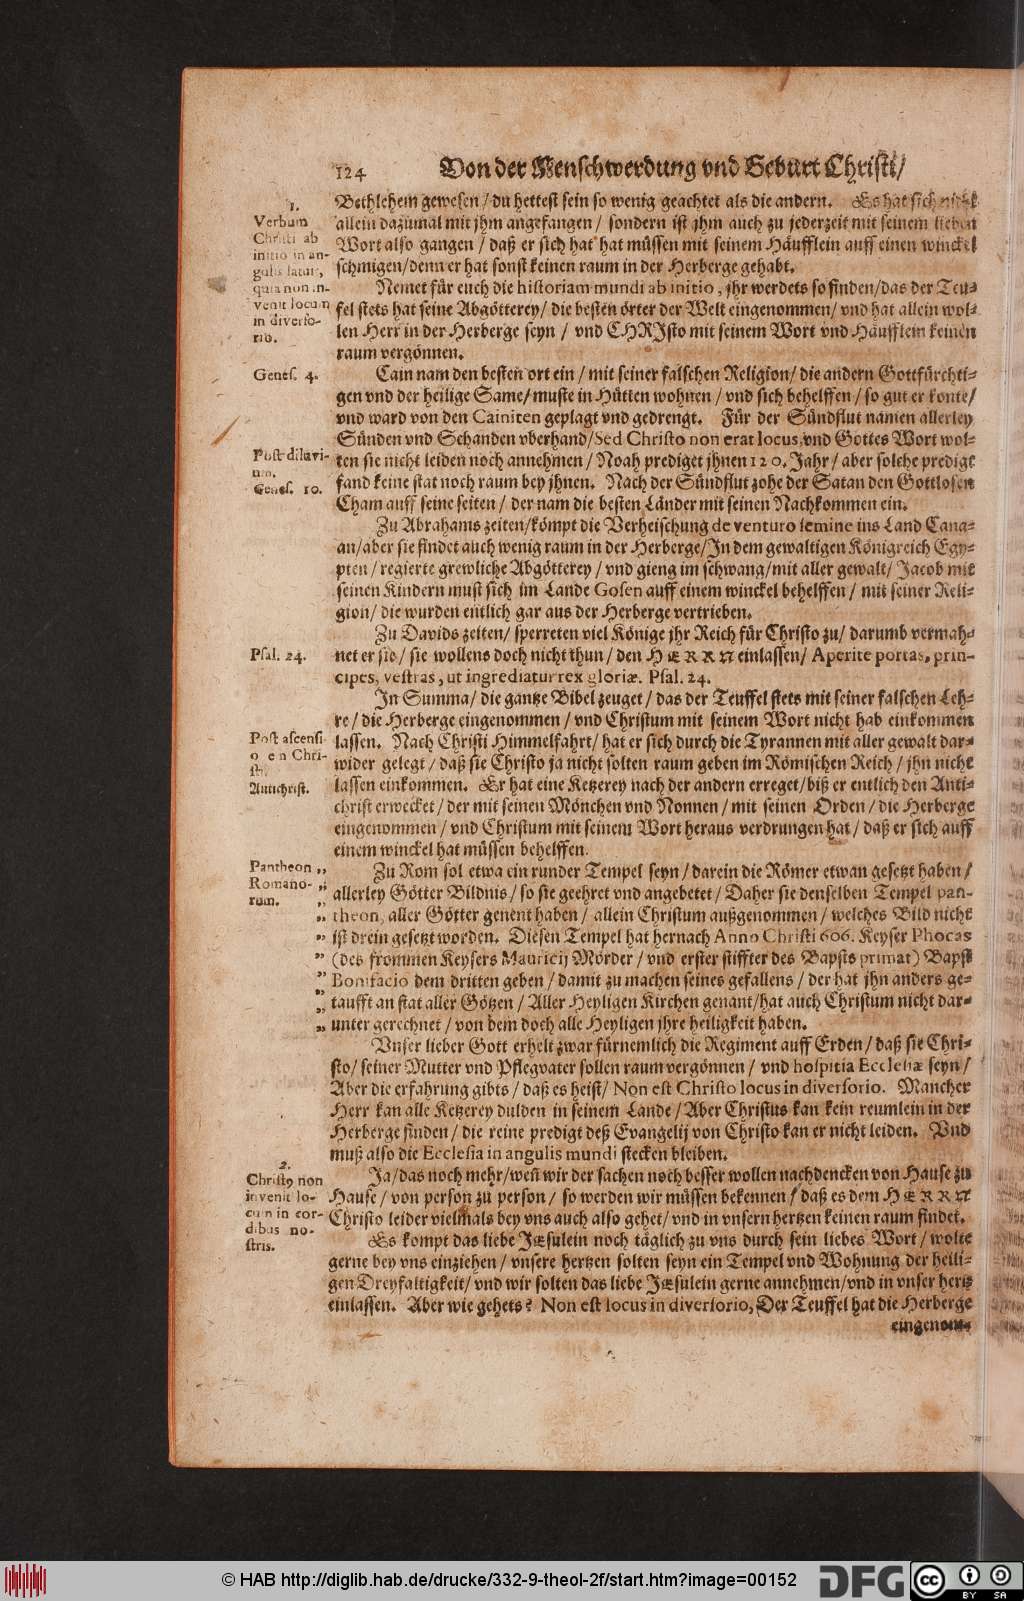 124 Von der Menschwerdung vnd Geburt Christi/
Bethlehem gewesen/ du hettest sein so wenig geachtet als die andern. Es hat sich nicht
allein dazumal mit jhm angefangen/ sondern ist jhm auch zu jederzeit mit seinem lieben
Wort also gangen/ daß er sich hat hat müssen mit seinem Häufflein auff einen winckel
schmigen/ denn er hat sonst keinen raum in der Herberge gehabt.
1.
Verbum
Christi ab
initio in an-
gulis latuit,
quia non in-
venit locum
in diverso-
rio.
Nemet für euch die historiam mundi ab initio, jhr werdets so finden/ das der Teu-
fel stets hat seine Abgötterey/ die besten örter der Welt eingenommen/ vnd hat allein wol-
len Herr in der Herberge seyn/ vnd CHRJsto mit seinem Wort vnd Häufflein keinen
raum vergönnen.
Genes. 4.
Cain nam den besten ort ein/ mit seiner falschen Religion/ die andern Gottfürchti-
gen vnd der heilige Same/ muste in Hütten wohnen/ vnd sich behelffen/ so gut er konte/
vnd ward von den Cainiten geplagt vnd gedrengt. Für der Sündflut namen allerley
Sünden vnd Schanden vberhand/ Sed Christo non erat locus, vnd Gottes Wort wol-
ten sie nicht leiden noch annehmen/ Noah prediget jhnen 120. Jahr/ aber solche predigt
fand keine stat noch raum bey jhnen. Nach der Sündflut zohe der Satan den Gottlosen
Cham auff seine seiten/ der nam die besten Länder mit seinen Nachkommen ein.
Post diluvi-
um.
Genes. 10.
Zu Abrahams zeiten/ kömpt die Verheischung de venturo semine ins Land Cana-
an/ aber sie findet auch wenig raum in der Herberge/ In dem gewaltigen Königreich Egy-
pten/ regierte grewliche Abgötterey/ vnd gieng im schwang/ mit aller gewalt/ Jacob mit
seinen Kindern must sich im Lande Gosen auff einem winckel behelffen/ mit seiner Reli-
gion/ die wurden entlich gar aus der Herberge vertrieben.
Zu Davids zeiten/ sperreten viel Könige jhr Reich für Christo zu/ darumb vermah-
net er sie/ sie wollens doch nicht thun/ den HERRN einlassen/ Aperite portas, prin-
cipes, vestras, ut ingrediatur rex gloriæ. Psal. 24.
Psal. 24.
In Summa/ die gantze Bibel zeuget/ das der Teuffel stets mit seiner falschen Leh-
re/ die Herberge eingenommen/ vnd Christum mit seinem Wort nicht hab einkommen
lassen. Nach Christi Himmelfahrt/ hat er sich durch die Tyrannen mit aller gewalt dar-
wider gelegt/ daß sie Christo ja nicht solten raum geben im Römischen Reich/ jhn nicht
lassen einkommen. Er hat eine Ketzerey nach der andern erreget/ biß er entlich den Anti-
christ erwecket/ der mit seinen Mönchen vnd Nonnen/ mit seinen Orden/ die Herberge
eingenommen/ vnd Christum mit seinem Wort heraus verdrungen hat/ daß er sich auff
einem winckel hat müssen behelffen.
Post ascensi-
Chri-
sti.
Antichrist.
Zu Rom sol etwa ein runder Tempel seyn/ darein die Römer etwan gesetzt haben/
allerley Götter Bildnis/ so sie geehret vnd angebetet/ Daher sie denselben Tempel pan-
theon, aller Götter genent haben/ allein Christum außgenommen/ welches Bild nicht
ist drein gesetzt worden. Diesen Tempel hat hernach Anno Christi 606. Keyser Phocas
(des frommen Keysers Mauricij Mörder/ vnd erster stiffter des Bapsts primat) Bapst
Bonifacio dem dritten geben/ damit zu machen seines gefallens/ der hat jhn anders ge-
taufft an stat aller Götzen/ Aller Heyligen Kirchen genant/ hat auch Christum nicht dar-
unter gerechnet/ von dem doch alle Heyligen jhre heiligkeit haben.
Pantheon „
Romano- „
rum. „
Vnser lieber Gott erhelt zwar fürnemlich die Regiment auff Erden/ daß sie Chri-
sto/ seiner Mutter vnd Pflegvater sollen raum vergönnen/ vnd hospitia Ecclesiæ seyn/
Aber die erfahrung gibts/ daß es heist/ Non est Christo locus in diversorio. Mancher
Herr kan alle Ketzerey dulden in seinem Lande/ Aber Christus kan kein reumlein in der
Herberge finden/ die reine predigt deß Evangelij von Christo kan er nicht leiden. Vnd
muß also die Ecclesia in angulis mundi stecken bleiben.
2.
Christꝯ non
invenit lo-
cum in cor-
dibus no-
stris.
Ja/ das noch mehr/ weñ wir der sachen noch besser wollen nachdencken von Hause zu
Hause/ von person zu person/ so werden wir müssen bekennen/ daß es dem HERRN
Christo leider vielmals bey vns auch also gehet/ vnd in vnsern hertzen keinen raum findet.
Es kompt das liebe JEsulein noch täglich zu vns durch sein liebes Wort/ wolte
gerne bey vns einziehen/ vnsere hertzen solten seyn ein Tempel vnd Wohnung der heili-
gen Dreyfaltigkeit/ vnd wir solten das liebe JEsulein gerne annehmen/ vnd in vnser hertz
einlassen. Aber wie gehets? Non est locus in diversorio, Der Teuffel hat die Herberge
eingenom-
© HAB http://diglib.hab.de/drucke/332-9-theol-2f/start.htm?image=00152
DFG
cc
BY SA